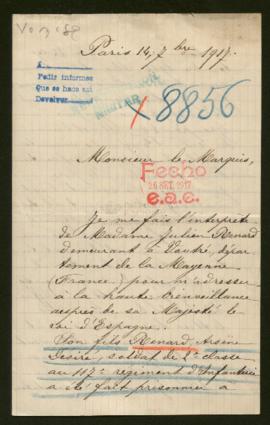 Paris 14, 7bre 1917.
Pedir informes
Que se haca sui
Devolver
MILITAR
x 8856
Monsieur le Marquis,
Fecho
26 SET. 1917
e.a.e.
Je me fais l'interprète
de Madame Julien Renard
demeurant à Voutré, dépar-
tement de la Mayenne
(France) pour m'adresser
à la haute bienveillance
auprès de sa Majesté le
Roi d'Espagne.
Son fils Renard, Arsène
Désiré, soldat de 2e classe
au 117e régiment d'Infanterie
a été fait prisonnier à